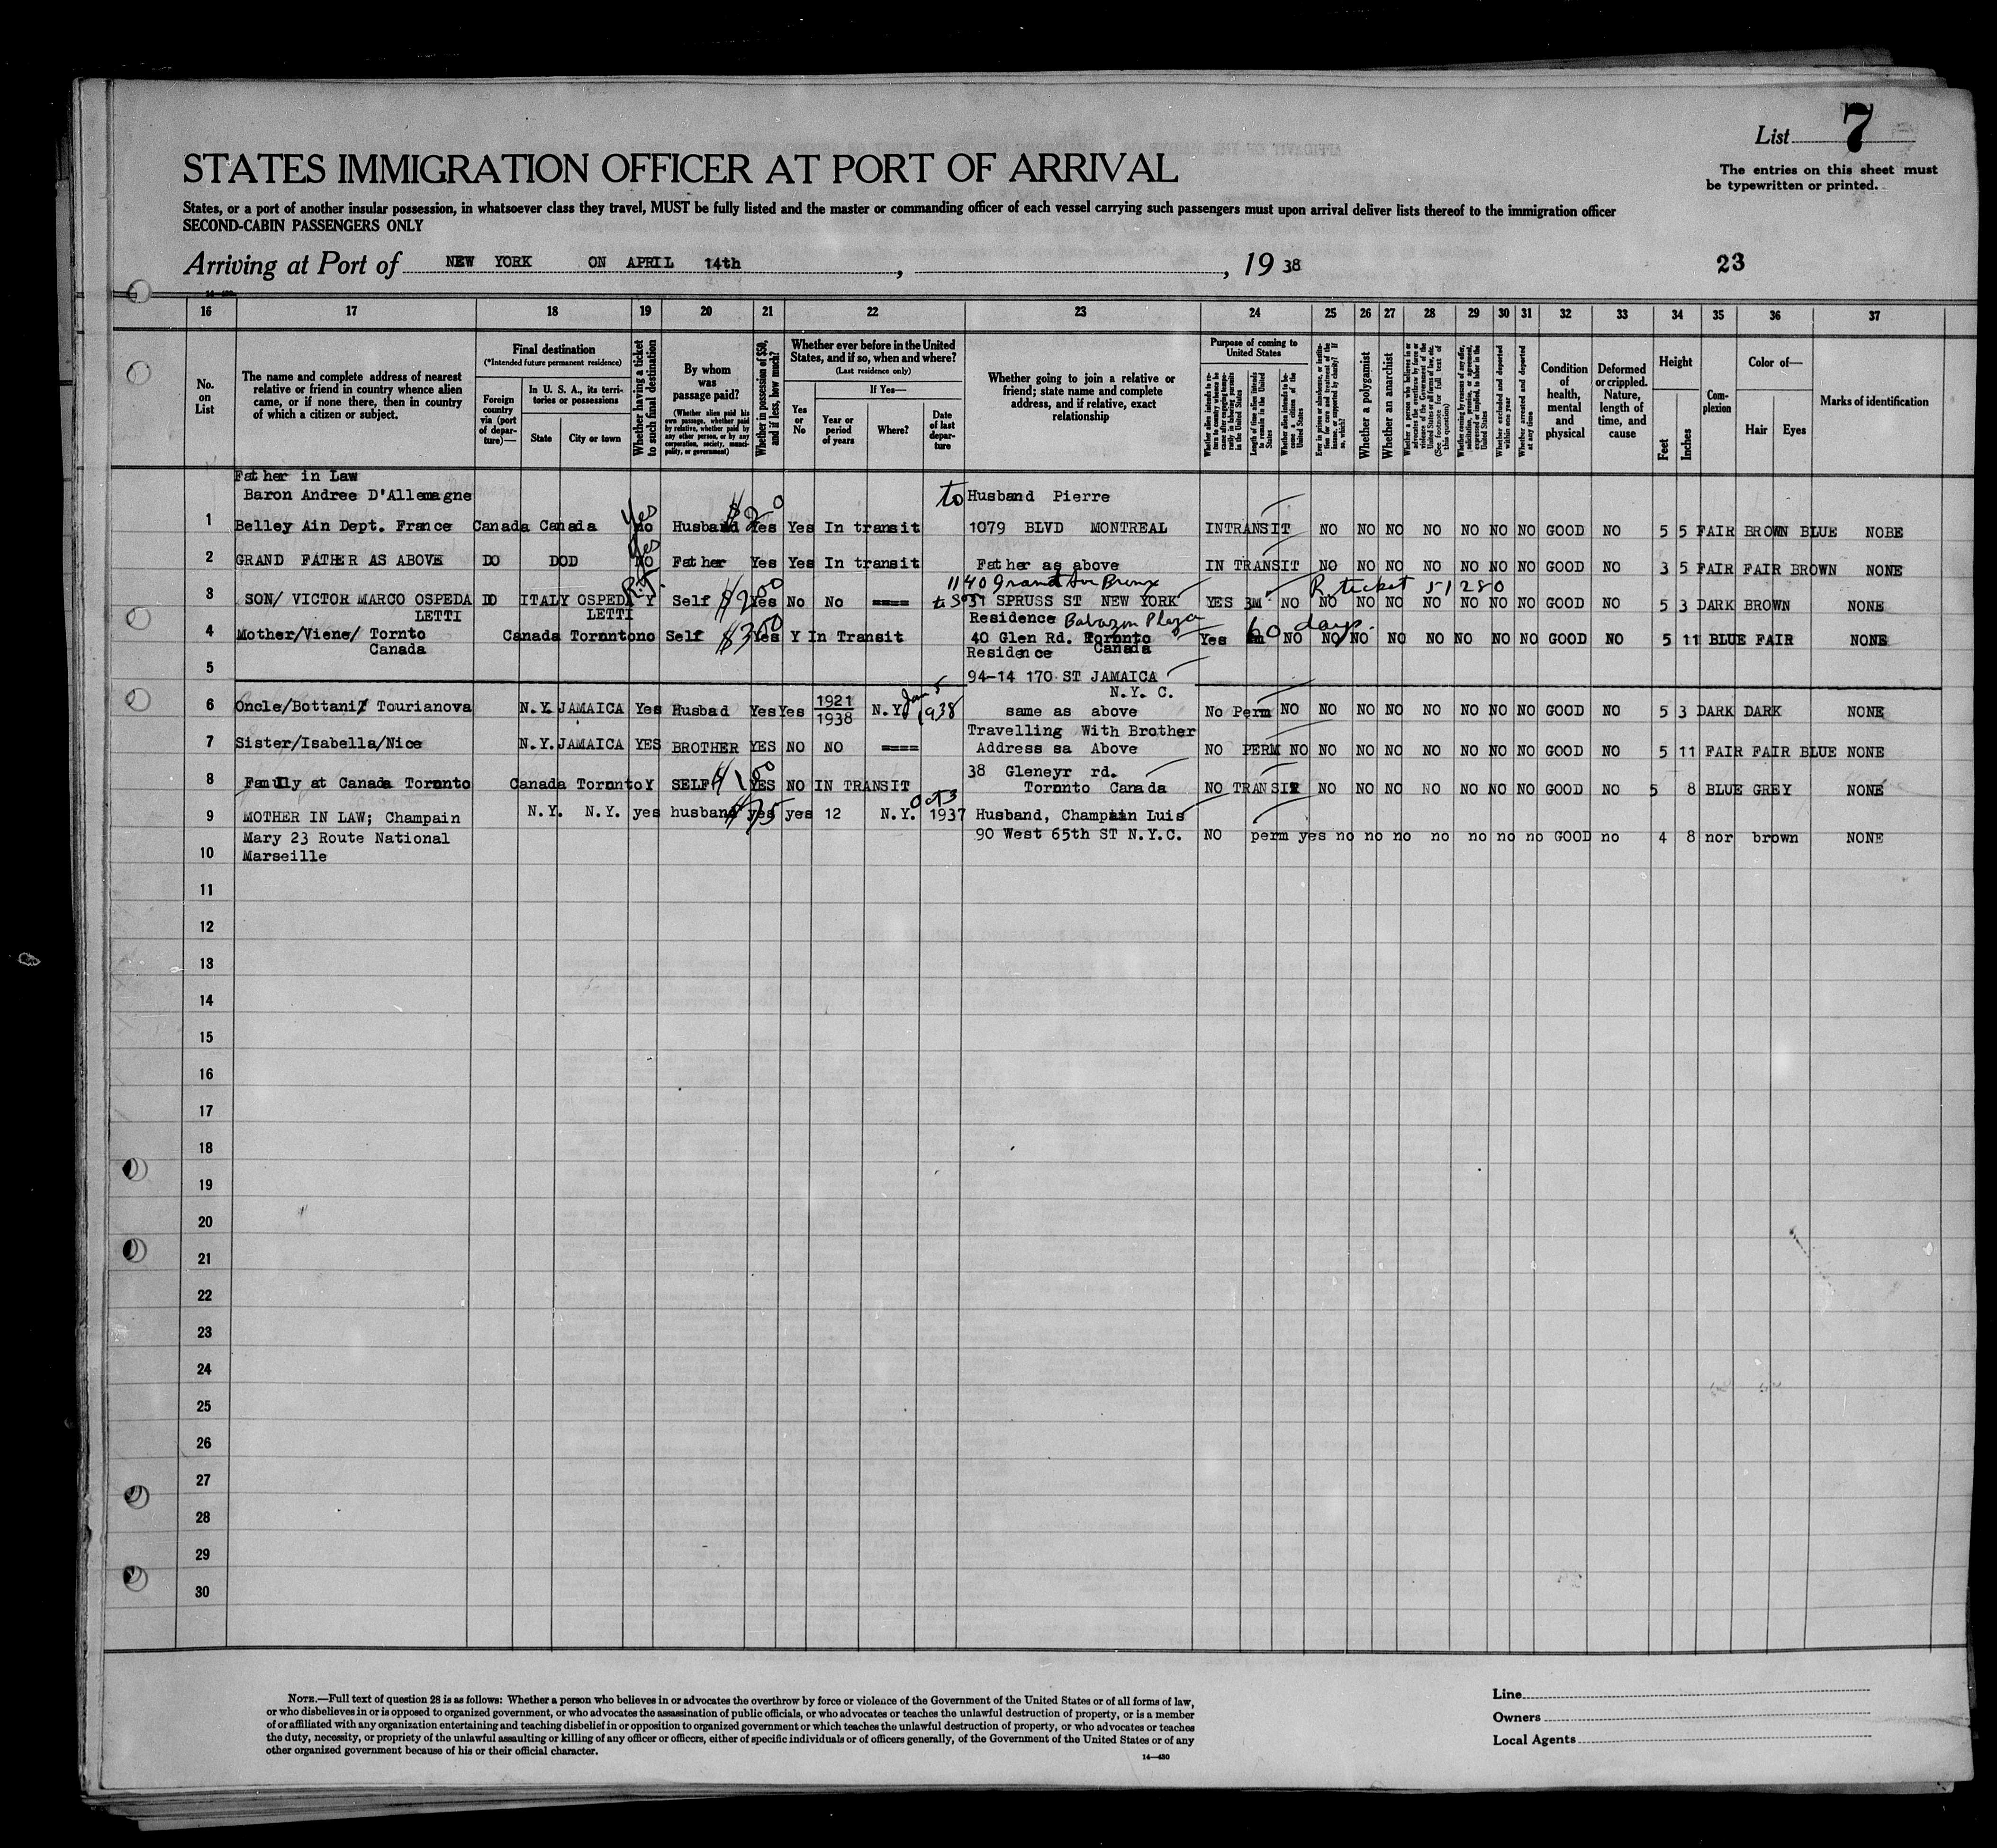 List 7
The entries on this sheet must
be typewritten or printed.
STATES IMMIGRATION OFFICER AT PORT OF ARRIVAL
States, or a port of another insular possession, in whatsoever class they travel, MUST be fully listed and the master or commanding officer of each vessel carrying such passengers must upon arrival deliver lists thereof to the immigration officer
SECOND-CABIN PASSENGERS ONLY
Arriving at Port of NEW YORK ON APRIL 14th , , 19 38 23
16 17 18 19 20 21 22 23 24 25 26 27 28 29 30 31 32 33 34 35 36 37
No. on List
The name and complete address of nearest relative or friend in country whence alien came, or if none there, then in country of which a citizen or subject.
Final destination
(*Intended future permanent residence)
Foreign country via (port of departure)—
In U. S. A., its territories or possessions
State
City or town
Whether having a ticket to such final destination
By whom was passage paid?
(Whether alien paid his own passage, whether paid by relative, whether paid by any other person, or by any corporation, society, municipality, or government)
Whether in possession of $50, and if less, how much?
Whether ever before in the United States, and if so, when and where?
(Last residence only)
Yes or No
If Yes—
Year or period of years
Where?
Date of last departure
Whether going to join a relative or friend; state name and complete address, and if relative, exact relationship
Purpose of coming to United States
Length of time alien intends to remain in the United States
Whether alien intends to become a citizen of the United States
Whether a polygamist
Whether an anarchist
Whether excluded and deported within one year
Whether arrested and deported at any time
Condition of health, mental and physical
Deformed or crippled. Nature, length of time, and cause
Height
Feet
Inches
Complexion
Color of—
Hair
Eyes
Marks of identification
Father in Law
Baron Andree D'Allemagne to Husband Pierre
1 Belley Ain Dept. France Canada Canada no Yes Husband $20 Yes Yes In transit 1079 BLVD MONTREAL INTRANSIT NO NO NO NO NO NO NO GOOD NO 5 5 FAIR BROWN BLUE NOBE
2 GRAND FATHER AS ABOVE DO DOD NO Yes Father Yes Yes In transit Father as above IN TRANSIT NO NO NO NO NO NO NO GOOD NO 3 5 FAIR FAIR BROWN NONE
1140 Grand Av Bronx R. ticket 51280
3 SON/ VICTOR MARCO OSPEDA DO ITALY OSPEDA Y Self $200 Yes No No ==== SPRUSS ST NEW YORK YES 3M NO NO NO NO NO NO NO NO GOOD NO 5 3 DARK BROWN NONE
LETTI LETTI Residence Plaza 60 days.
4 Mother/Viene/ Tornto Canada Torontono Self $300 Yes Y In Transit 40 Glen Rd. Toronto Yes NO NO NO NO NO NO NO NO GOOD NO 5 11 BLUE FAIR NONE
Canada Residence Canada
5 94-14 170 ST JAMAICA
N.Y. C.
6 Oncle/Bottani/ Tourianova N.Y. JAMAICA Yes Husbad Yes Yes 1921 1938 N.Y. Jan 5 1938 same as above No Perm NO NO NO NO NO NO NO NO GOOD NO 5 3 DARK DARK NONE
Travelling With Brother
7 Sister/Isabella/Nice N.Y. JAMAICA YES BROTHER YES NO NO ==== Address sa Above NO PERM NO NO NO NO NO NO NO NO GOOD NO 5 11 FAIR FAIR BLUE NONE
38 Gleneyr rd.
8 Family at Canada Toronto Canada Toronto Y SELF YES NO IN TRANSIT Toronto Canada NO TRANSIT NO NO NO NO NO NO NO GOOD NO 5 8 BLUE GREY NONE
9 MOTHER IN LAW; Champain N.Y. N.Y. yes husband $75 yes yes 12 N.Y. Oct 3 1937 Husband, Champain Luis
Mary 23 Route National 90 West 65th ST N.Y.C. NO perm yes no no no no no no no GOOD no 4 8 nor brown NONE
10 Marseille
11
12
13
14
15
16
17
18
19
20
21
22
23
24
25
26
27
28
29
30
NOTE.—Full text of question 28 is as follows: Whether a person who believes in or advocates the overthrow by force or violence of the Government of the United States or of all forms of law,
or who disbelieves in or is opposed to organized government, or who advocates the assassination of public officials, or who advocates or teaches the unlawful destruction of property, or is a member
of or affiliated with any organization entertaining and teaching disbelief in or opposition to organized government or which teaches the unlawful destruction of property, or who advocates or teaches
the duty, necessity, or propriety of the unlawful assaulting or killing of any officer or officers, either of specific individuals or of officers generally, of the Government of the United States or of any
other organized government because of his or their official character.
14—430
Line
Owners
Local Agents